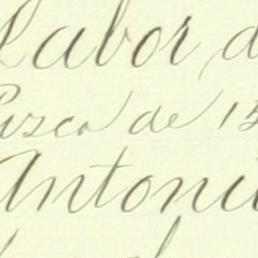 Labor d
Pasco de 15
Antoni